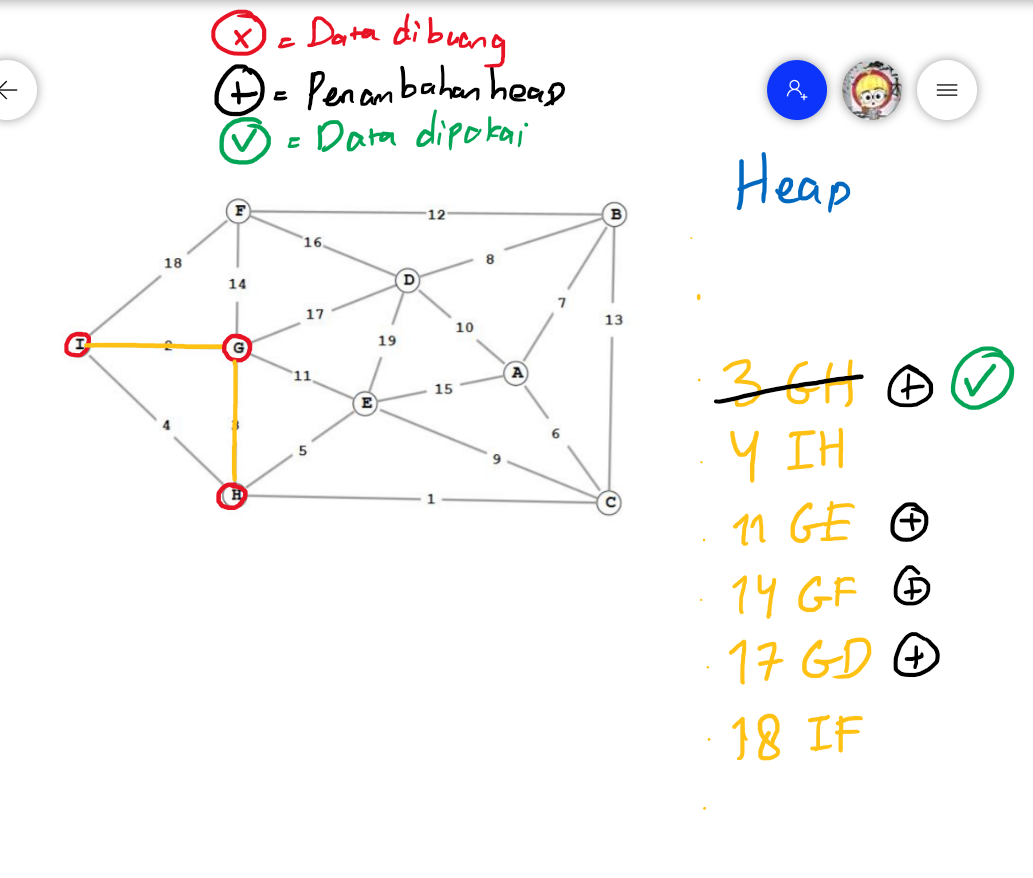 x = Data dibuang
+ = Penambahan heap
✓ = Data dipakai
Heap
F 12 B
16
8
18
D
14
17
10
7
19
13
I 2 G
11
A
15
E
4
3
6
5
9
H 1 C
3 GH + ✓
4 IH
11 GE +
14 GF +
17 GD +
18 IF